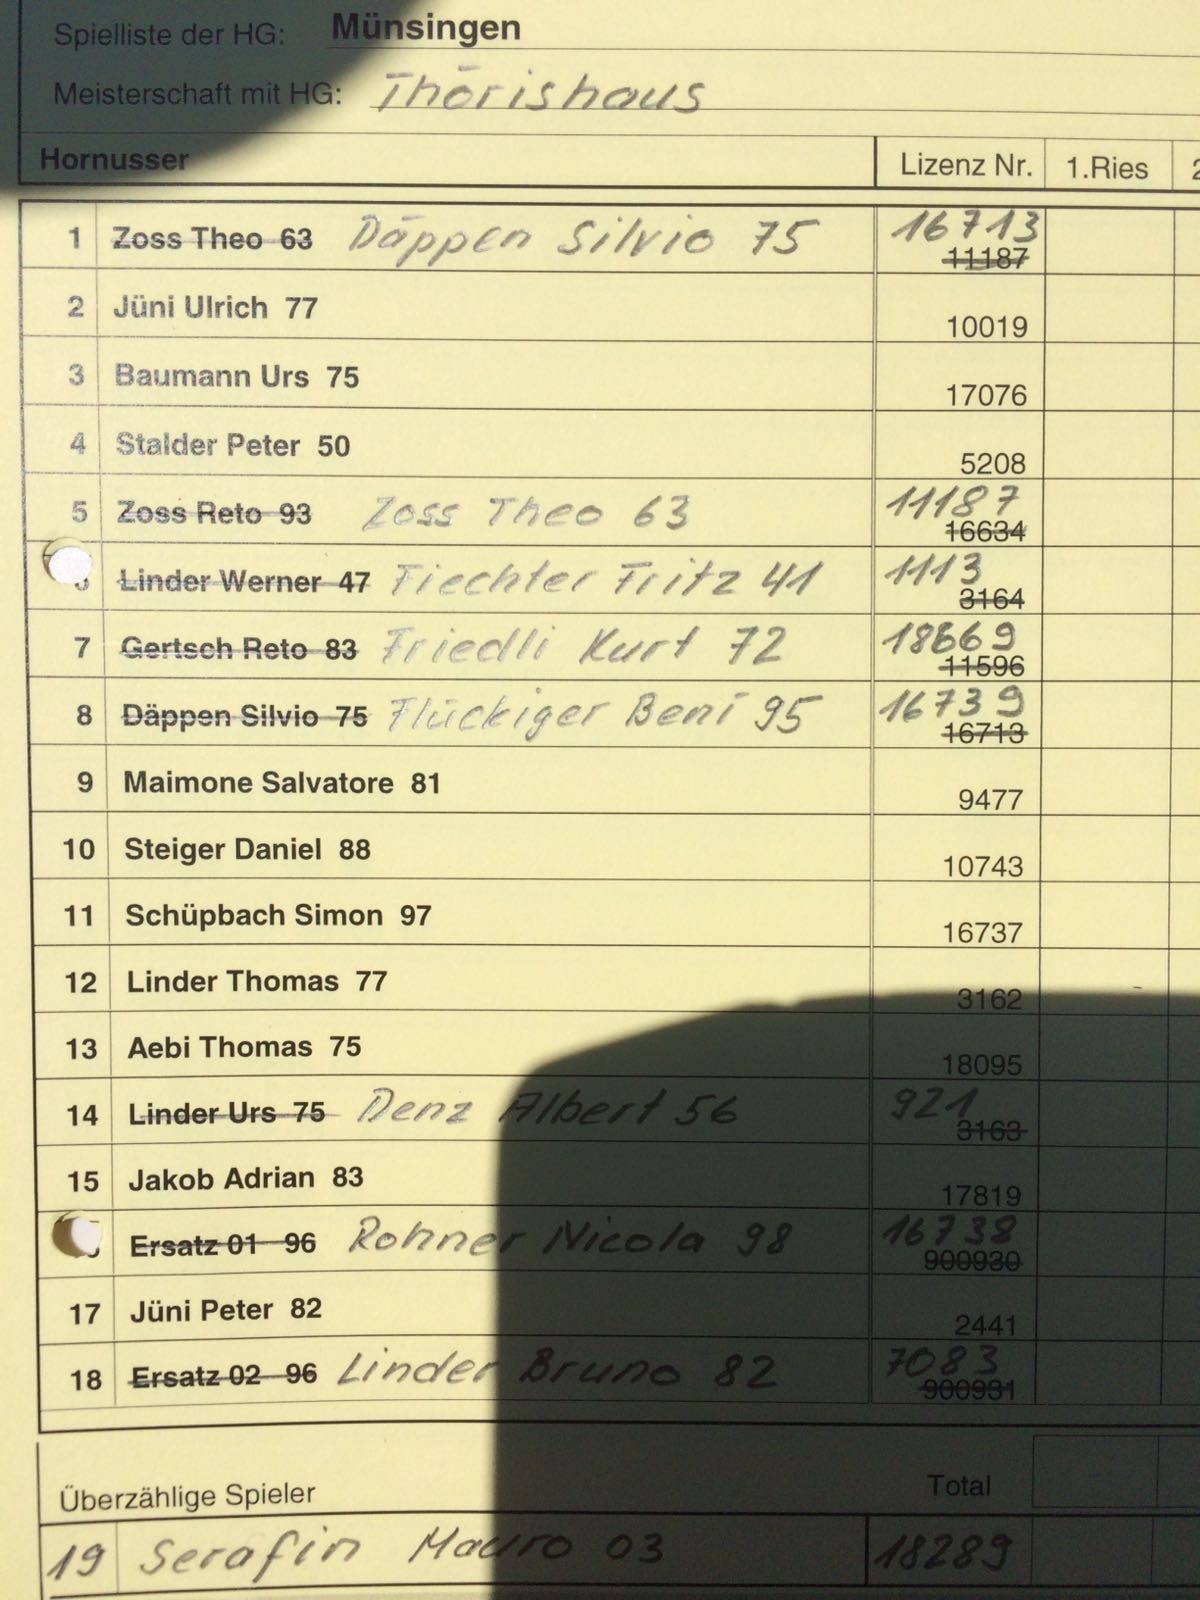 Spielliste der HG: Münsingen
Meisterschaft mit HG: Thörishaus
Hornusser Lizenz Nr. 1.Ries 2
1 Zoss Theo 63 Däppen Silvio 75 16713 11187
2 Jüni Ulrich 77 10019
3 Baumann Urs 75 17076
4 Stalder Peter 50 5208
5 Zoss Reto 93 Zoss Theo 63 11187 16634
Linder Werner 47 Fiechter Fritz 41 1113 3164
7 Gertsch Reto 83 Friedli Kurt 72 18669 11596
8 Däppen Silvio 75 Flückiger Beni 95 16739 16713
9 Maimone Salvatore 81 9477
10 Steiger Daniel 88 10743
11 Schüpbach Simon 97 16737
12 Linder Thomas 77 3162
13 Aebi Thomas 75 18095
14 Linder Urs 75 Denz Albert 56 921 3163
15 Jakob Adrian 83 17819
Ersatz 01 96 Rohner Nicola 98 16738 900930
17 Jüni Peter 82 2441
18 Ersatz 02 96 Linder Bruno 82 7083 900931
Überzählige Spieler Total
19 Serafin Mauro 03 18289